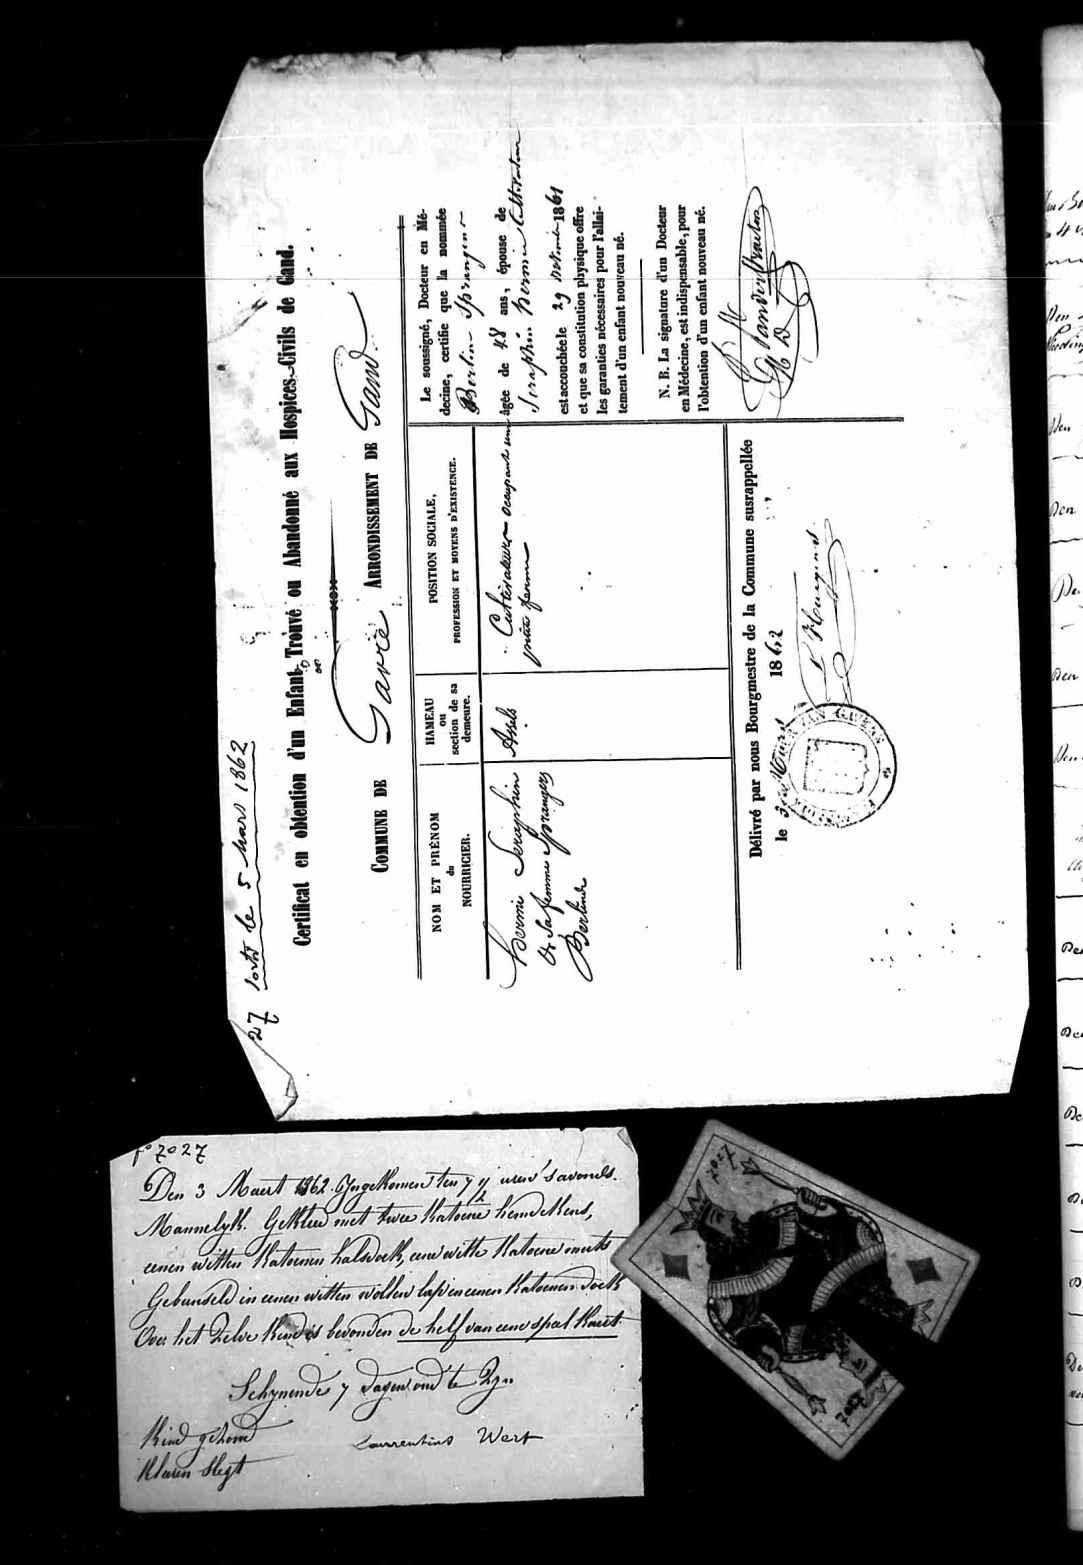 27 sorti le 5 Mars 1862
Certificat en obtention d'un Enfant Trouvé ou Abandonné aux Hospices-Civils de Gand.
COMMUNE DE Gavre ARRONDISSEMENT DE Gand
NOM ET PRÉNOM
du
NOURRICIER.
Hermie Seraphin
& sa femme Sprangers
Berlinde
HAMEAU
ou
section de sa
demeure.
Assels
POSITION SOCIALE,
PROFESSION ET MOYENS D'EXISTENCE.
Cultivateur occupant une
petite ferme
Le soussigné, Docteur en Mé-
decine, certifie que la nommée
Berline Sprangers
âgée de 48 ans, épouse de
Seraphin Hermie Cultivateur
est accouchée le 29 1861
et que sa constitution physique offre
les garanties nécessaires pour l'allai-
tement d'un enfant nouveau né.
N. B. La signature d'un Docteur
en Médecine, est indispensable, pour
l'obtention d'un enfant nouveau né.
Vanderstraeten
Délivré par nous Bourgmestre de la Commune susrappellée
le 3 Mars 1862
VAN GAVERE
n° 7027
Den 3 Maert 1862. Ingekomen ten 7 1/2 uren 's avonds.
Mannelyk. Gekleed met twee katoene hemdekens,
eenen witten katoenen halsdoek, eene witte katoene muts
Gebunseld in eenen witten wollen lap en eenen katoenen doek
Over het zelve kind is bevonden de helf van eene speel kaert.
Schynende 7 dagen oud te zyn
Kind gezond
Klaeren slegt
Laurentius Wert
7027
7027